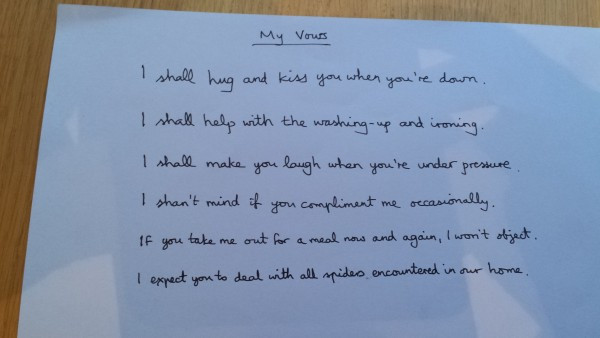 My Vows
I shall hug and kiss you when you're down.
I shall help with the washing-up and ironing.
I shall make you laugh when you're under pressure.
I shan't mind if you compliment me occasionally.
If you take me out for a meal now and again, I won't object.
I expect you to deal with all spiders encountered in our home.